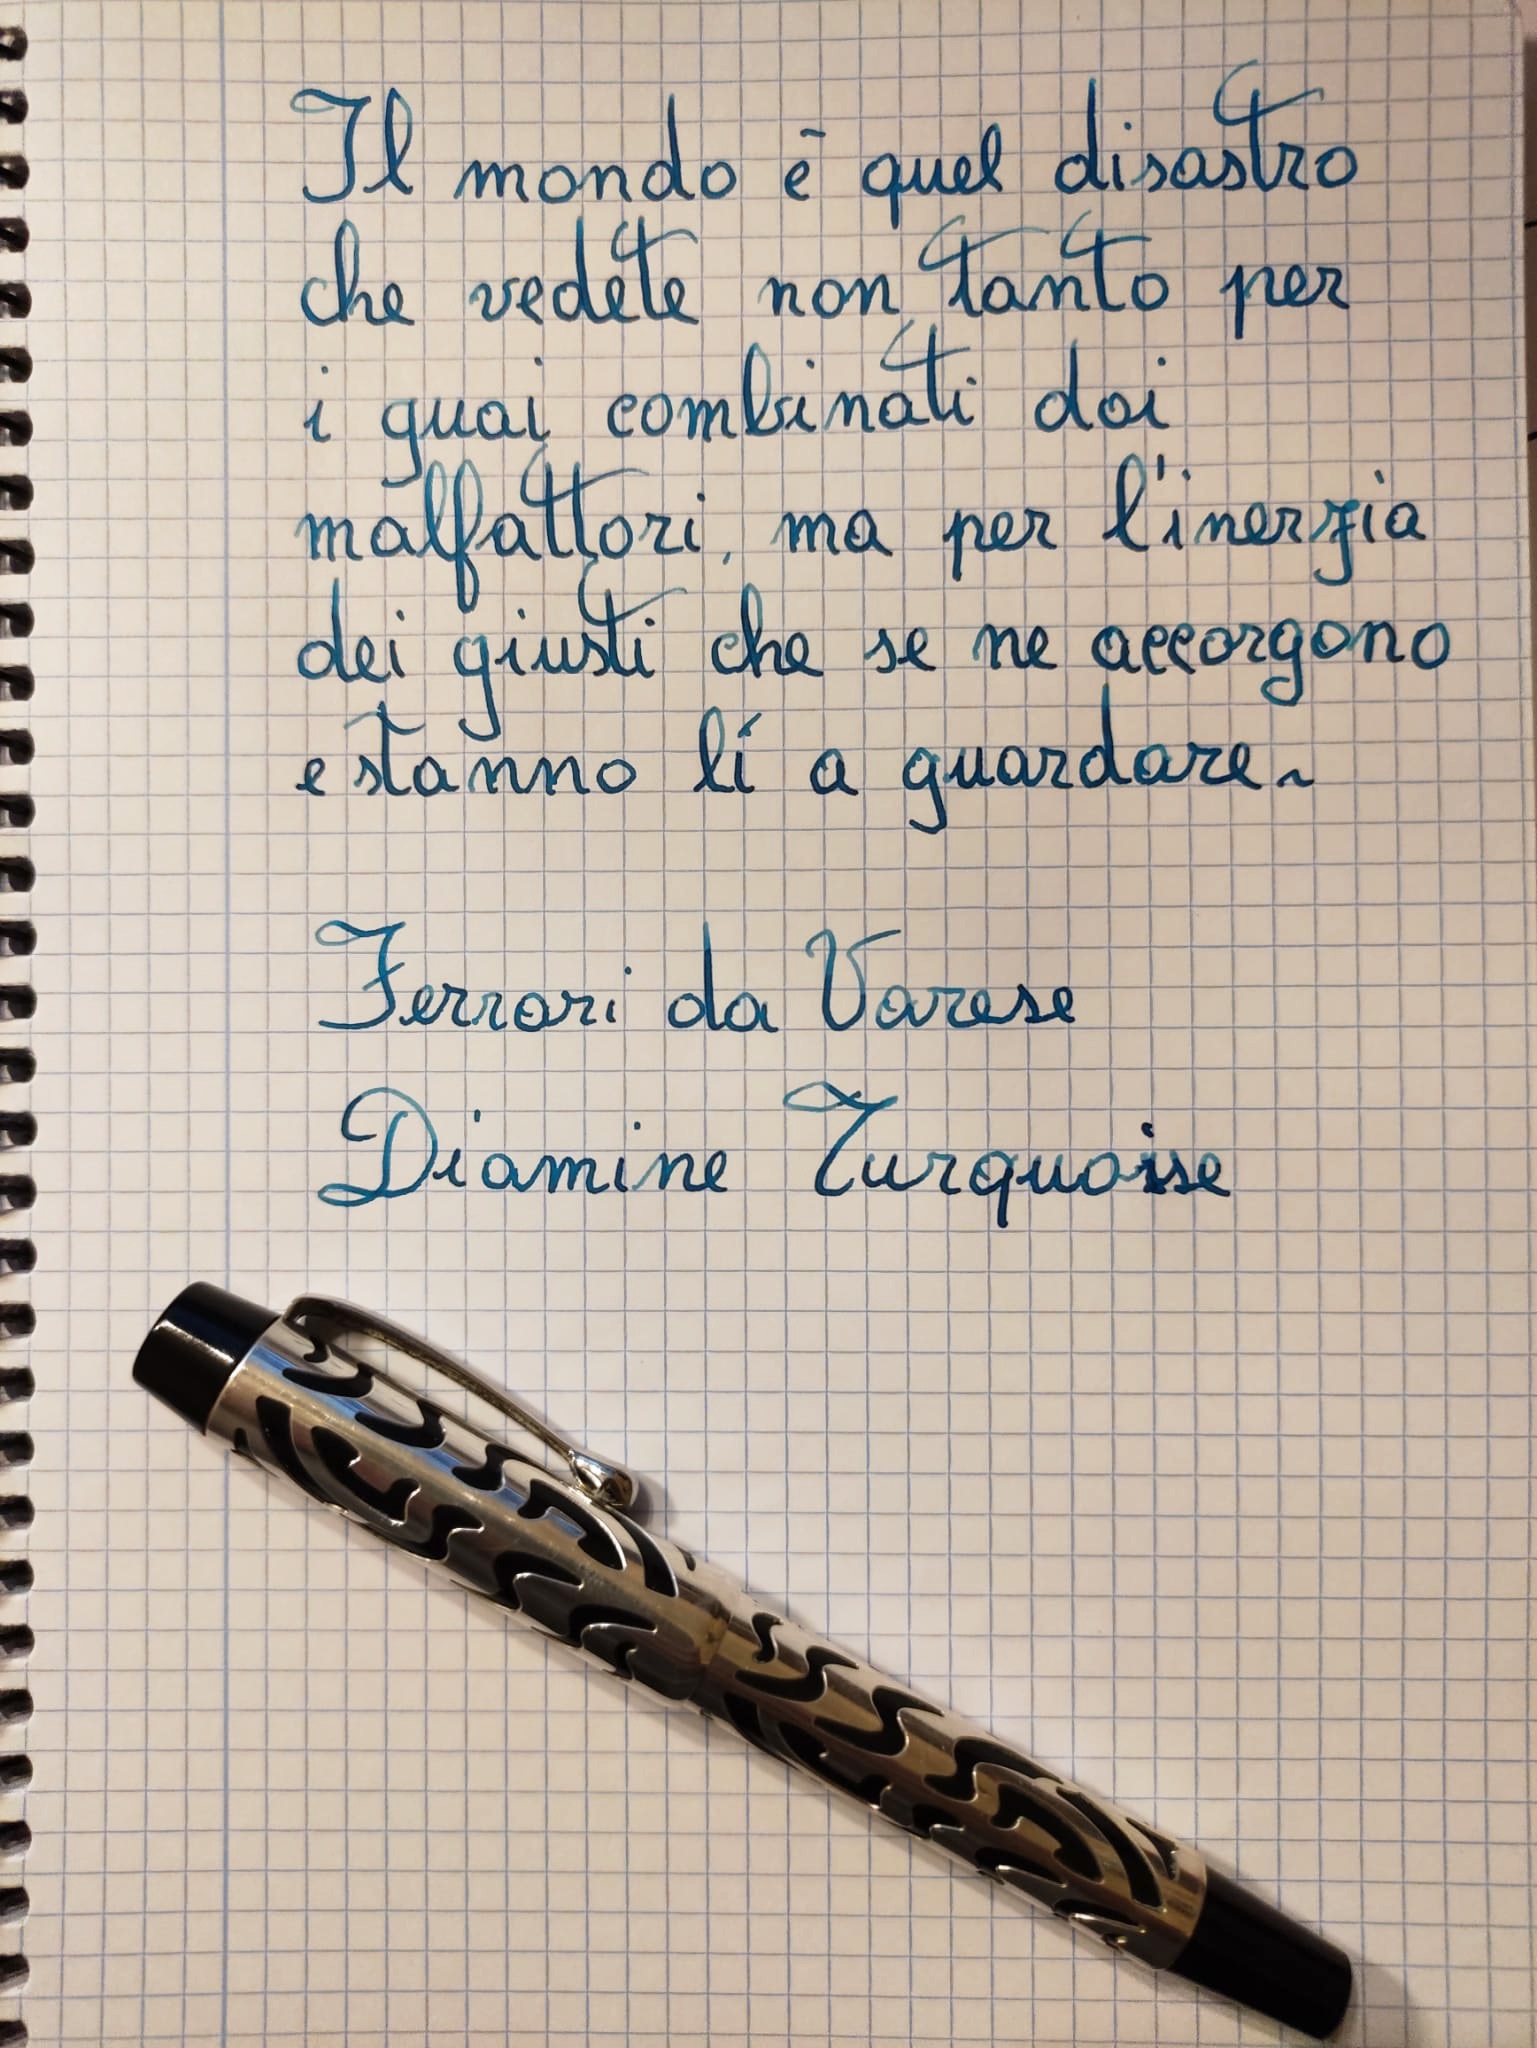 Il mondo è quel disastro
che vedete non tanto per
i guai combinati dai
malfattori, ma per l'inerzia
dei giusti che se ne accorgono
e stanno lí a guardare.
Ferrari da Varese
Diamine Turquoise